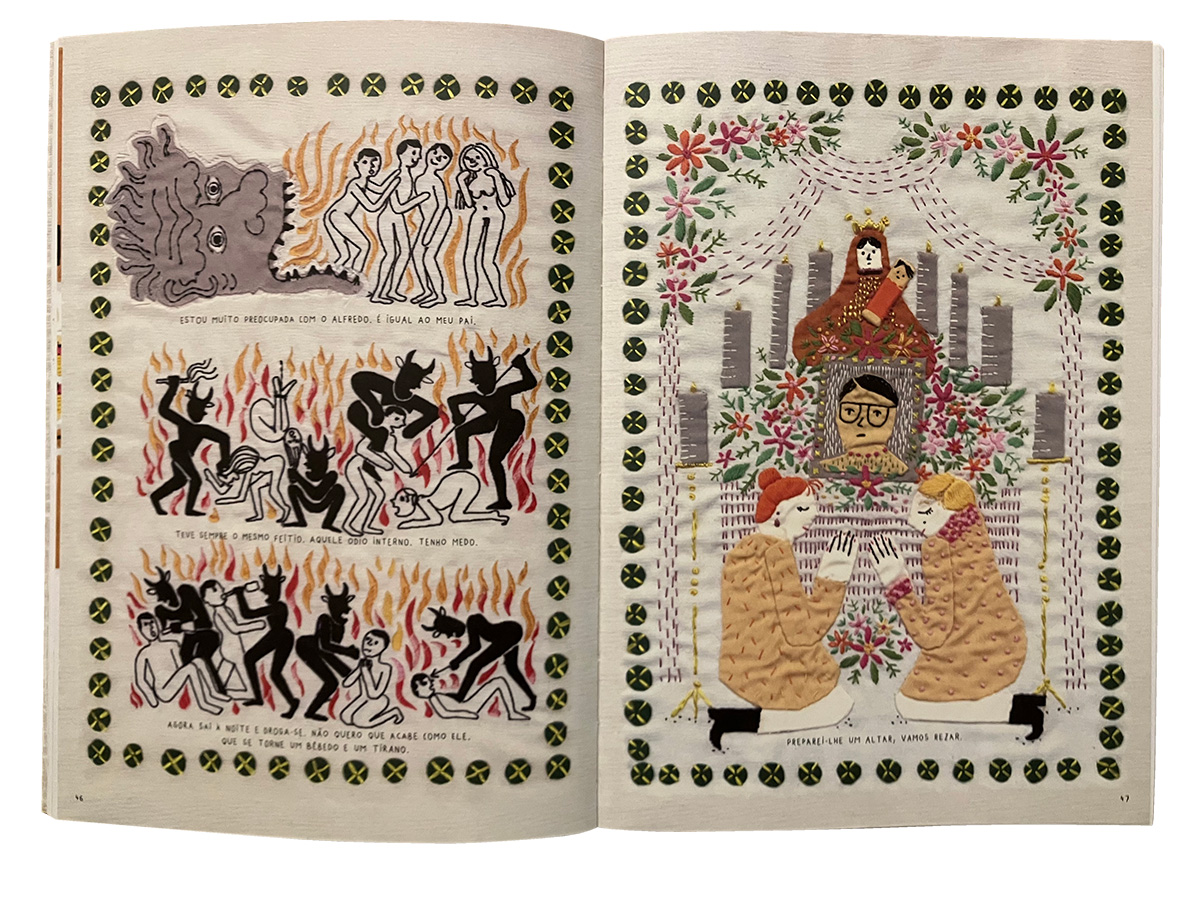 ESTOU MUITO PREOCUPADA COM O ALFREDO. É IGUAL AO MEU PAI.
TEVE SEMPRE O MESMO FEITIO. AQUELE ÓDIO INTERNO. TENHO MEDO.
AGORA SAI À NOITE E DROGA-SE. NÃO QUERO QUE ACABE COMO ELE,
QUE SE TORNE UM BÊBEDO E UM TIRANO.
46
PREPAREI-LHE UM ALTAR, VAMOS REZAR.
47